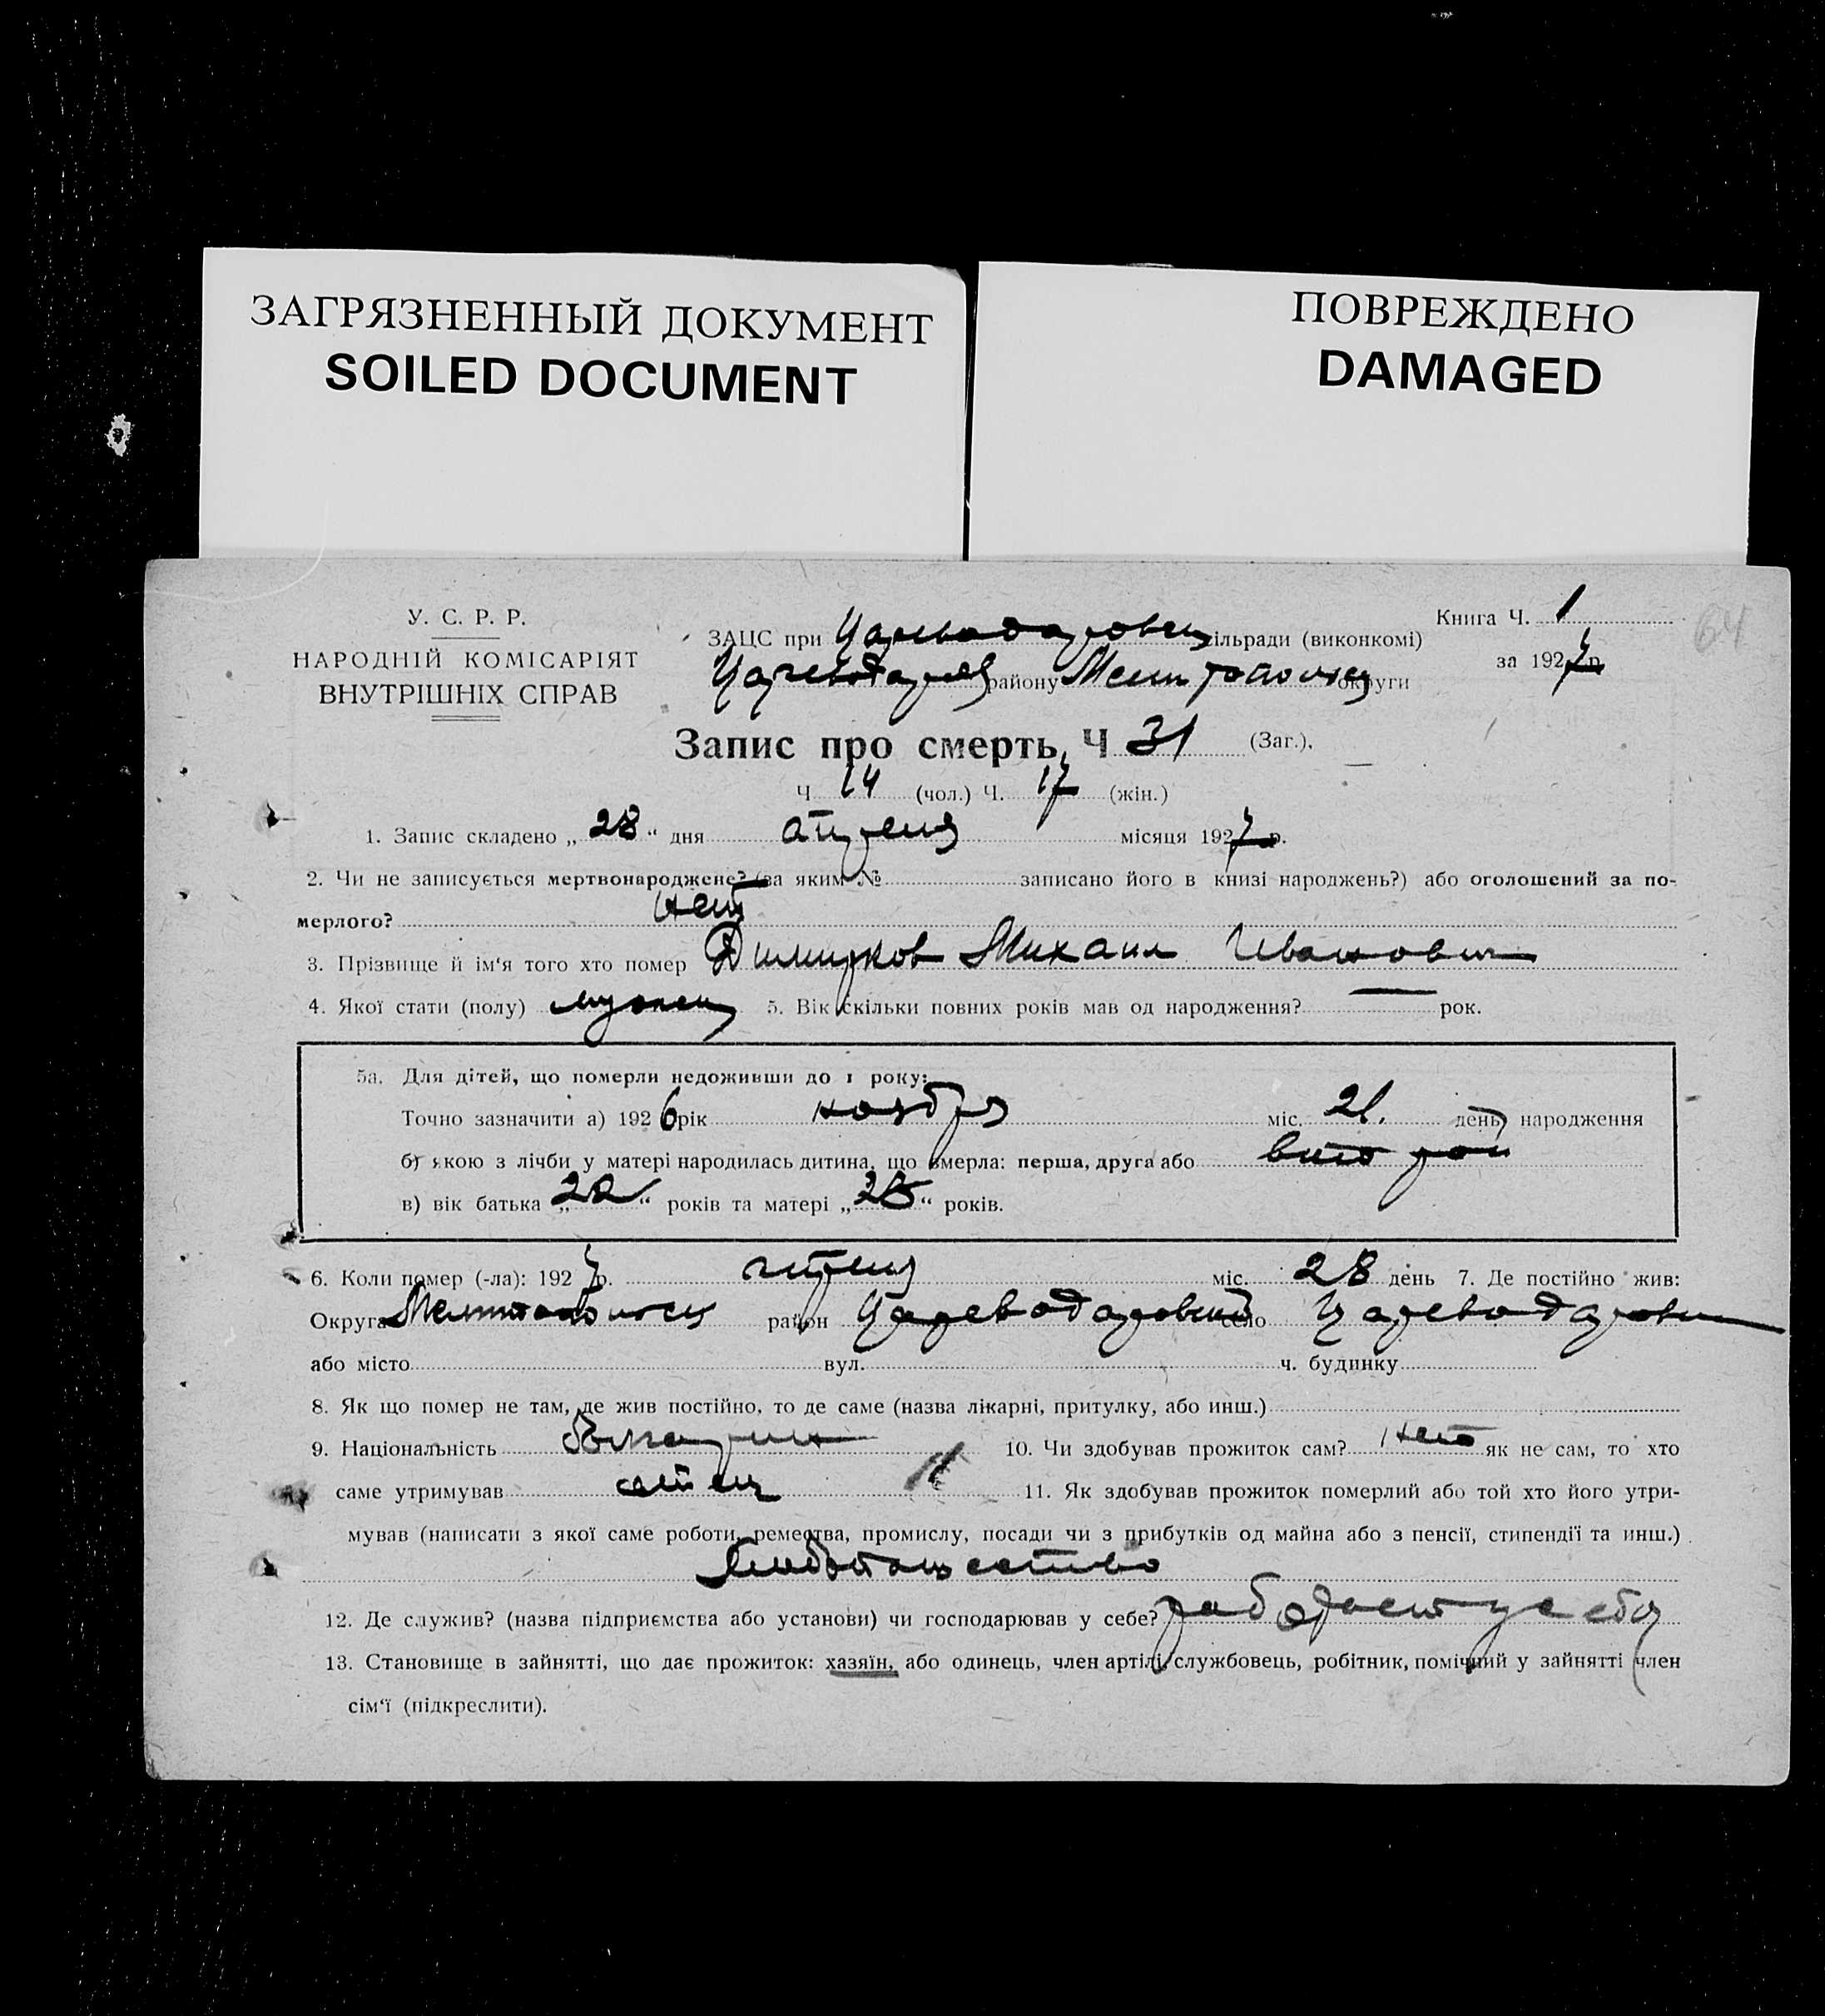 ЗАГРЯЗНЕННЫЙ ДОКУМЕНТ
SOILED DOCUMENT
ПОВРЕЖДЕНО
DAMAGED
У. С. Р. Р.
НАРОДНІЙ КОМІСАРІЯТ
ВНУТРІШНІХ СПРАВ
ЗАЦС при сільради (виконкомі)
району округи
Книга Ч. 1
за 1927 р.
64
Запис про смерть, Ч 31 (Заг.),
Ч 14 (чол.) Ч. 17 (жін.)
1. Запис складено „ 28 “ дня апреля місяця 1927 р.
2. Чи не записується мертвонароджене? (за яким № записано його в книзі народжень?) або оголошений за по-
мерлого? нет
3. Прізвище й ім‘я того хто помер Михаил Иванович
4. Якої стати (полу) 5. Вік скільки повних років мав од народження? — рок.
5а. Для дітей, що померли недоживши до 1 року:
Точно зазначити а) 1926 рік ноября міс. 21. день народження
б) якою з лічби у матері народилась дитина, що вмерла: перша, друга або
в) вік батька „ 22 “ років та матері „ “ років.
6. Коли помер (-ла): 1927 р. апреля міс. 28 день 7. Де постійно жив:
Округа район Цареводаровский село
або місто вул. ч. будинку
8. Як що помер не там, де жив постійно, то де саме (назва лікарні, притулку, або инш.)
9. Національність 10. Чи здобував прожиток сам? нет як не сам, то хто
саме утримував отец 11. Як здобував прожиток померлий або той хто його утри-
мував (написати з якої саме роботи, ремества, промислу, посади чи з прибутків од майна або з пенсії, стипендії та инш.)
12. Де служив? (назва підприємства або установи) чи господарював у себе? работает у себя
13. Становище в зайнятті, що дає прожиток: хазяїн, або одинець, член артілі, службовець, робітник, помічний у зайнятті член
сім‘ї (підкреслити).